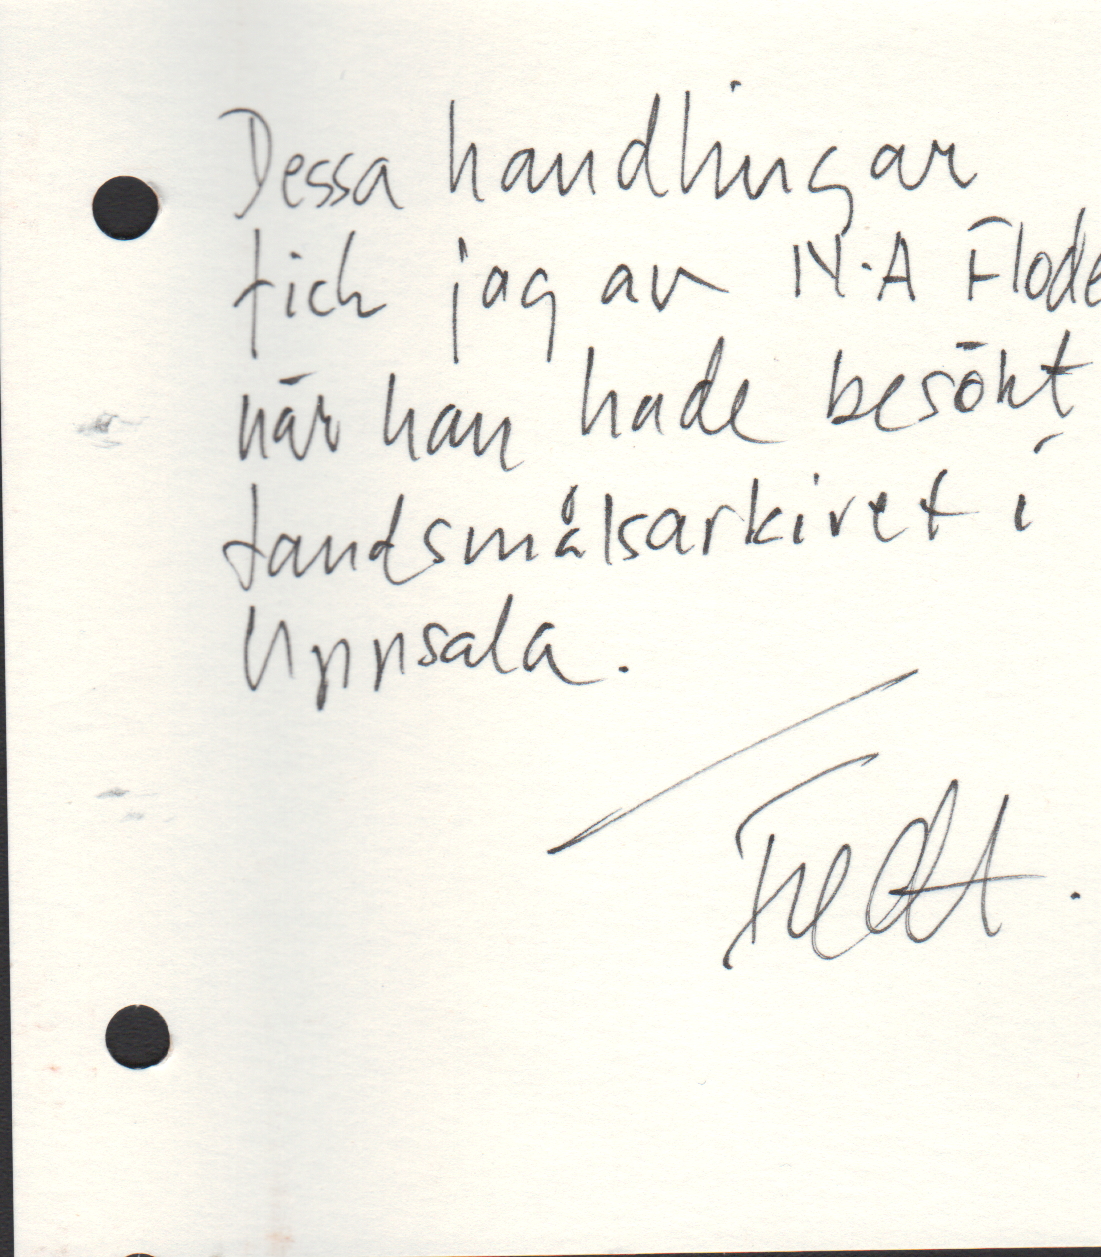 Dessa handlingar
fick jag av N.A Flode
när han hade besökt
landsmålsarkivet i
Uppsala.